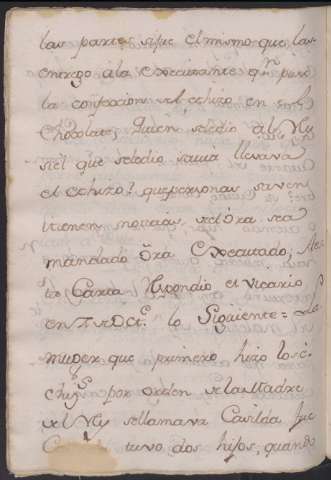 las partes sifue el mismo que las
entrego ala Executante qn̄ puso
la confeccion del echizo en
Chocolate, Quien seledio al Rey
si el que seledio savia llevava
el echizo? que personas saven
ô tienen noticia, sele ôra sea
mandado ôra Executado, A es
ta Carta Respondio el Vicario
en 7. de Oct.e lo Siguiente = La
muger que primero hizo los e
chizos por orden de la Madre
del Rey sellamava Casilda fue
tuvo dos hijos, quando